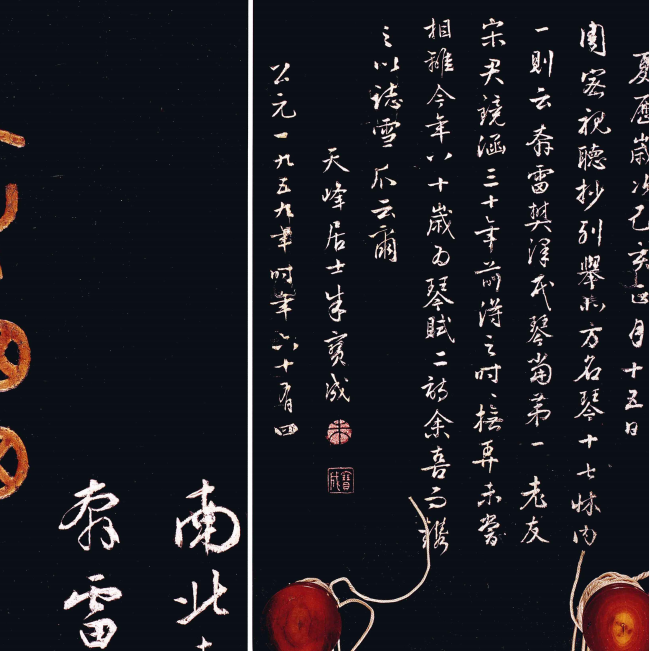 夏曆歲次己亥四月十五日
周密視聽抄列舉北方名琴十七床內
一則云春雷樊澤民琴當第一老友
宋君鏡涵三十年前得之時時撫弄未嘗
相離今年八十歲為琴賦二詩余喜而鐫
之以誌雪爪云爾
天峰居士朱寶成
朱
寶成
公元一九五九年時年六十有四
南北
春雷